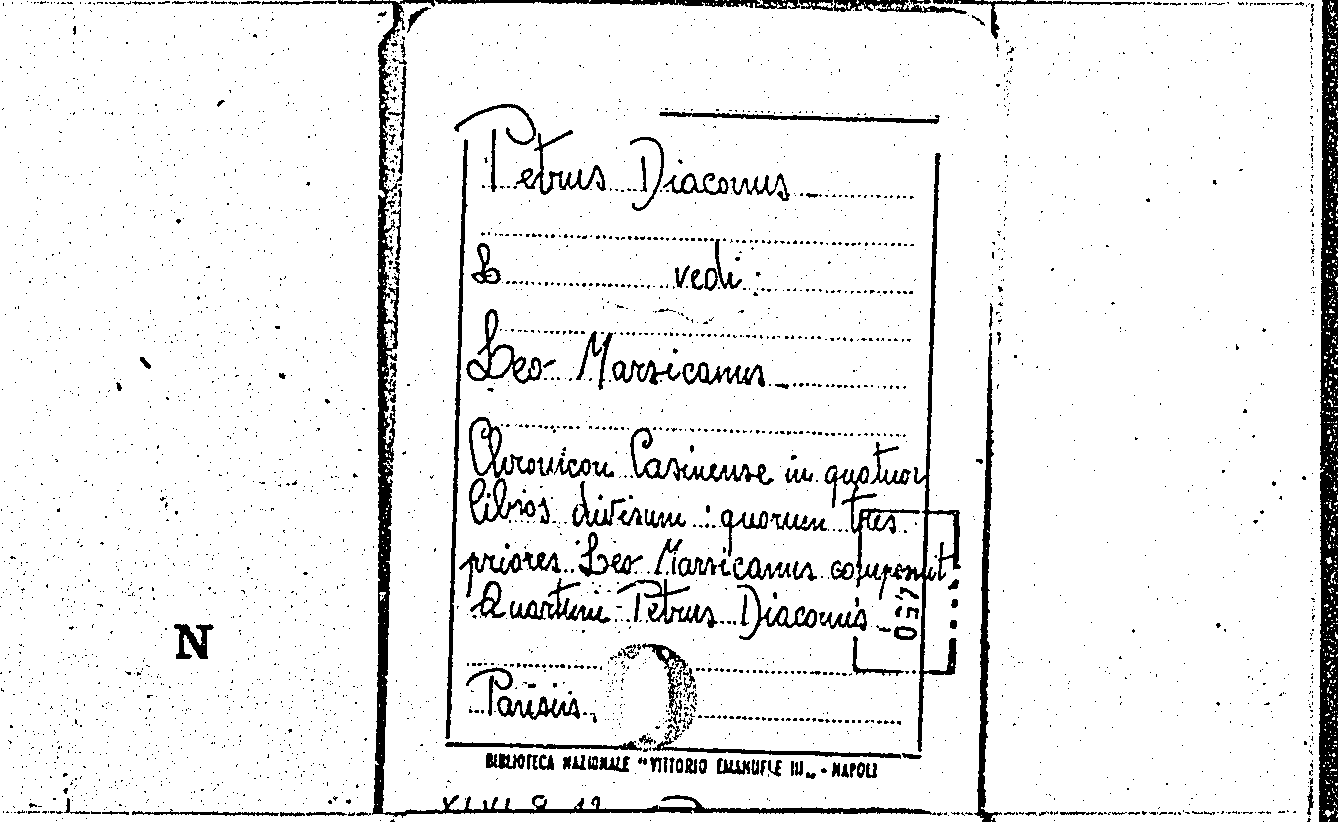 Petrus Diaconus
vedi:
Leo Marsicanus
Chronicon Casinense in quatuor
libros divisum: quorum tres
priores Leo Marsicanus composuit
Quartum Petrus Diaconus
Parisiis,
BIBLIOTECA NAZIONALE "VITTORIO EMANUELE III„ - NAPOLI
N